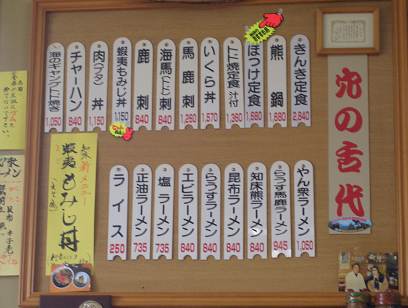 きんき定食 2,840
熊鍋 1,680
ほっけ定食 1,680
トド焼定食 汁付 1,360
いくら丼 1,570
馬鹿刺 1,260
海馬(トド)刺 840
鹿刺 840
蝦夷もみじ丼 1,150
肉(ブタ)丼 1,150
チャーハン 840
海のギャングトド焼き 1,050
やん衆ラーメン 1,050
らうす馬鹿ラーメン 945
知床熊ラーメン 840
昆布ラーメン 840
らうすラーメン 840
エビラーメン 840
塩ラーメン 735
正油ラーメン 735
ライス 250
蝦夷もみじ丼